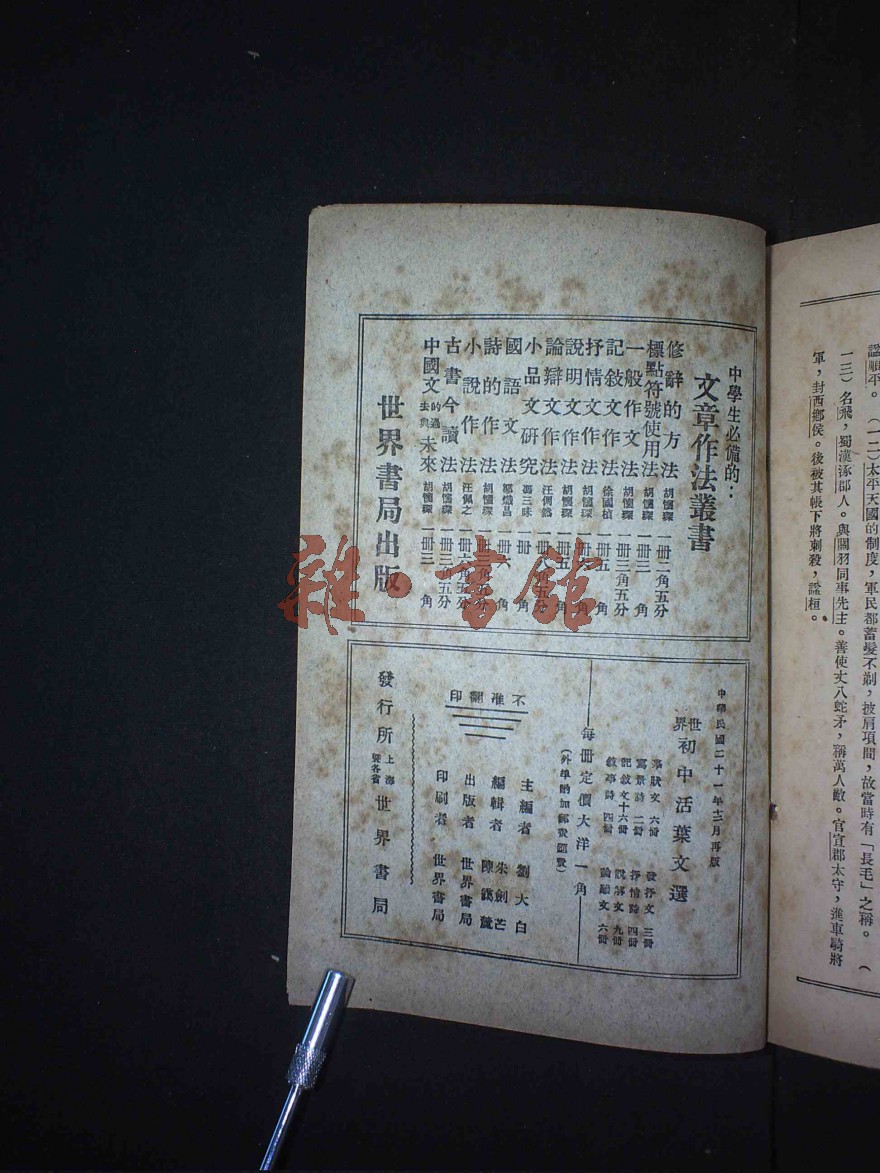 諡順平。　(一二)太平天國的制度，軍民都蓄髮不剃，披肩項間，故當時有「長毛」之稱。　(
一三)名飛，蜀漢涿郡人。與關羽同事先主。善使丈八蛇矛，稱萬人敵。官宜郡太守，進車騎將
軍，封西鄉侯。後被其帳下將刺殺，諡桓。
中學生必備的：
文章作法叢書
修辭的方法 胡懷琛 一冊二角五分
標點符號使用法 胡懷琛 一冊三角
一般作文法 胡懷琛 一冊三角五分
記敘文作法 徐國楨 一冊五角
抒情文作法 胡懷琛 一冊五角
說明文作法 胡懷琛 一冊五角
論辯文作法 汪倜然 一冊六角五分
小品文研究 馮三昧 一冊 角
國語文法 鄒熾昌 一冊六角
詩的作法 胡懷琛 角五分
小說作法 汪佩之 一冊六角五分
古書今讀法 胡懷琛 一冊三角五分
中國文的過去與未來 胡懷琛 一冊三角
世界書局出版
雜·書館
中華民國二十一年十二月再版
世界初中活葉文選
事狀文 六冊
寫景詩 二冊
記敘文十六冊
敘事詩 四冊
發抒文 三冊
抒情詩 四冊
說解文 九冊
論辯文 六冊
每冊定價大洋一角
(外埠酌加郵費匯費)
不准翻印
主編者 劉大白
編輯者 朱劍芒 陳靄麓
出版者 世界書局
印刷者 世界書局
發行所 上海暨各省 世界書局